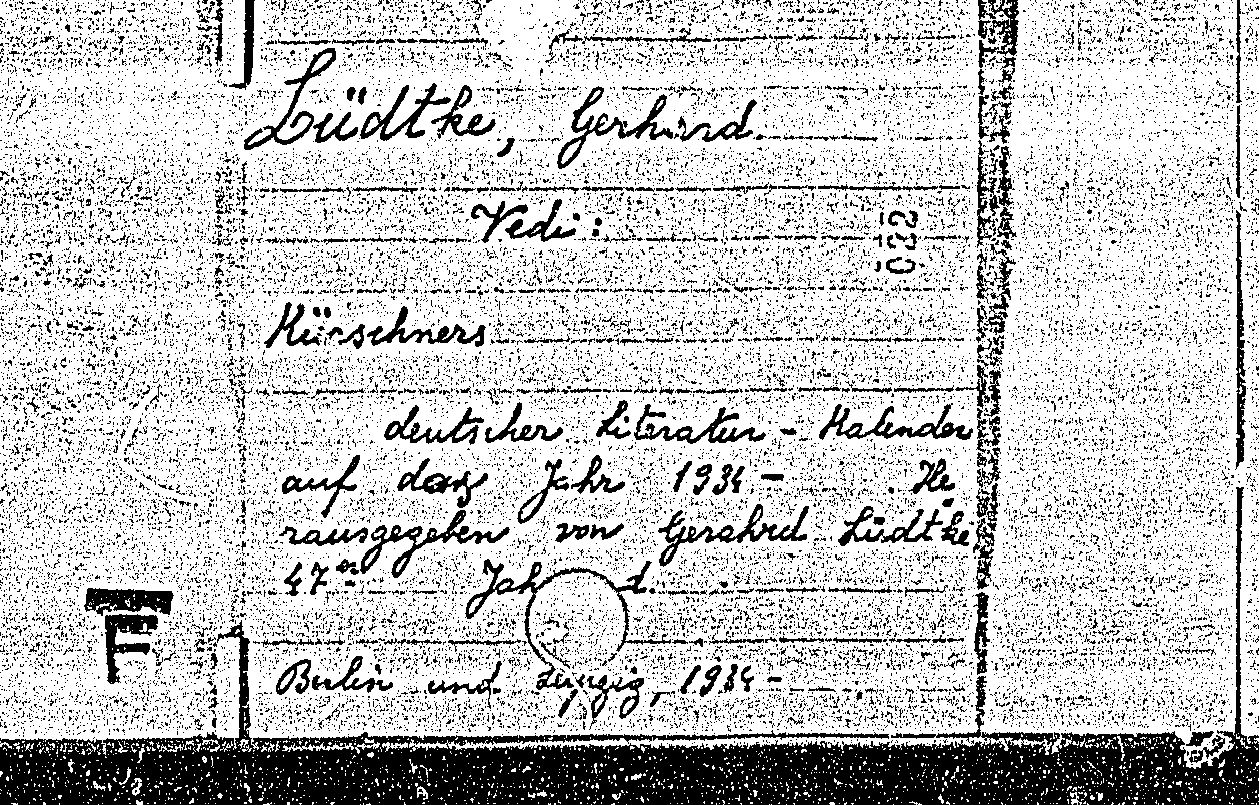 Lüdtke, Gerhard.
Vedi:
Kürschners
deutscher Literatur - Kalender
auf das Jahr 1934 - . He
rausgegeben von Gerahrd Lüdtke
47
Berlin und Leipzig, 1934 - .